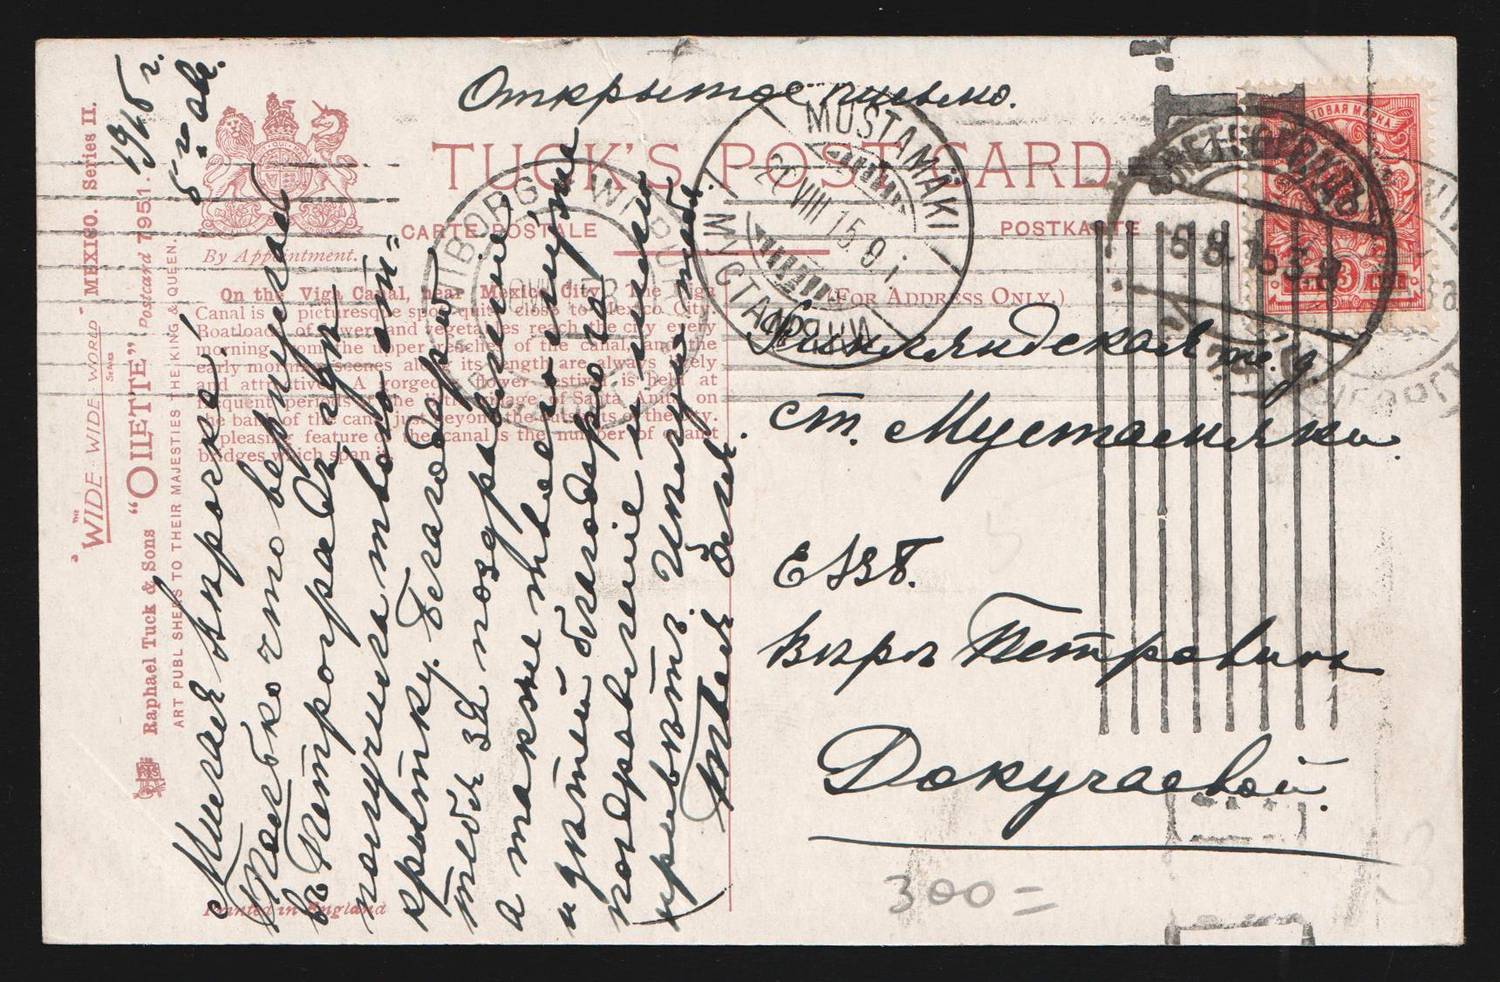 Открытое письмо.
TUCK'S POST CARD
CARTE POSTALE
POSTKARTE
(FOR ADDRESS ONLY.)
By Appointment.
On the Viga Canal, near Mexico City. The Viga
Canal is a picturesque spot quite close to Mexico City.
Boatloads of flower and vegetables reach the city every
morning from the upper reaches of the canal, and the
early morning scenes along its length are always lively
and attractive. A gorgeous flower festival is held at
frequent periods at the village of Santa Anita on
the banks of the canal just beyond the outskirts of the city.
A pleasing feature of the canal is the number of quaint
bridges which span it.
Printed in England
"THE "WIDE-WIDE-WORLD" SERIES MEXICO. Series II.
Raphael Tuck & Sons "OILETTE" Postcard 7951.
ART PUBLISHERS TO THEIR MAJESTIES THE KING & QUEEN.
1915 г.
5 авг.
Милая Вѣрочка!
Только что вернулся
въ Петроградъ и
получила твою от-
крытку. Благодарю
тебя за поздравление
а также твоего мужа
и дѣтей благодарю за
поздравление и шлю
привѣтъ.
Твоя
Финляндская ж. д.
ст. Мустамяки.
ЕВБ.
Вѣрѣ Петровнѣ
Докучаевой.
MUSTAMÄKI
МУСТАМЯКИ
22 VIII 15. 9 I.
WIBORG WIIPURI
ПЕТРОГРАДЪ
5 8. 15
ПОЧТОВАЯ МАРКА
3 КОП
300 =